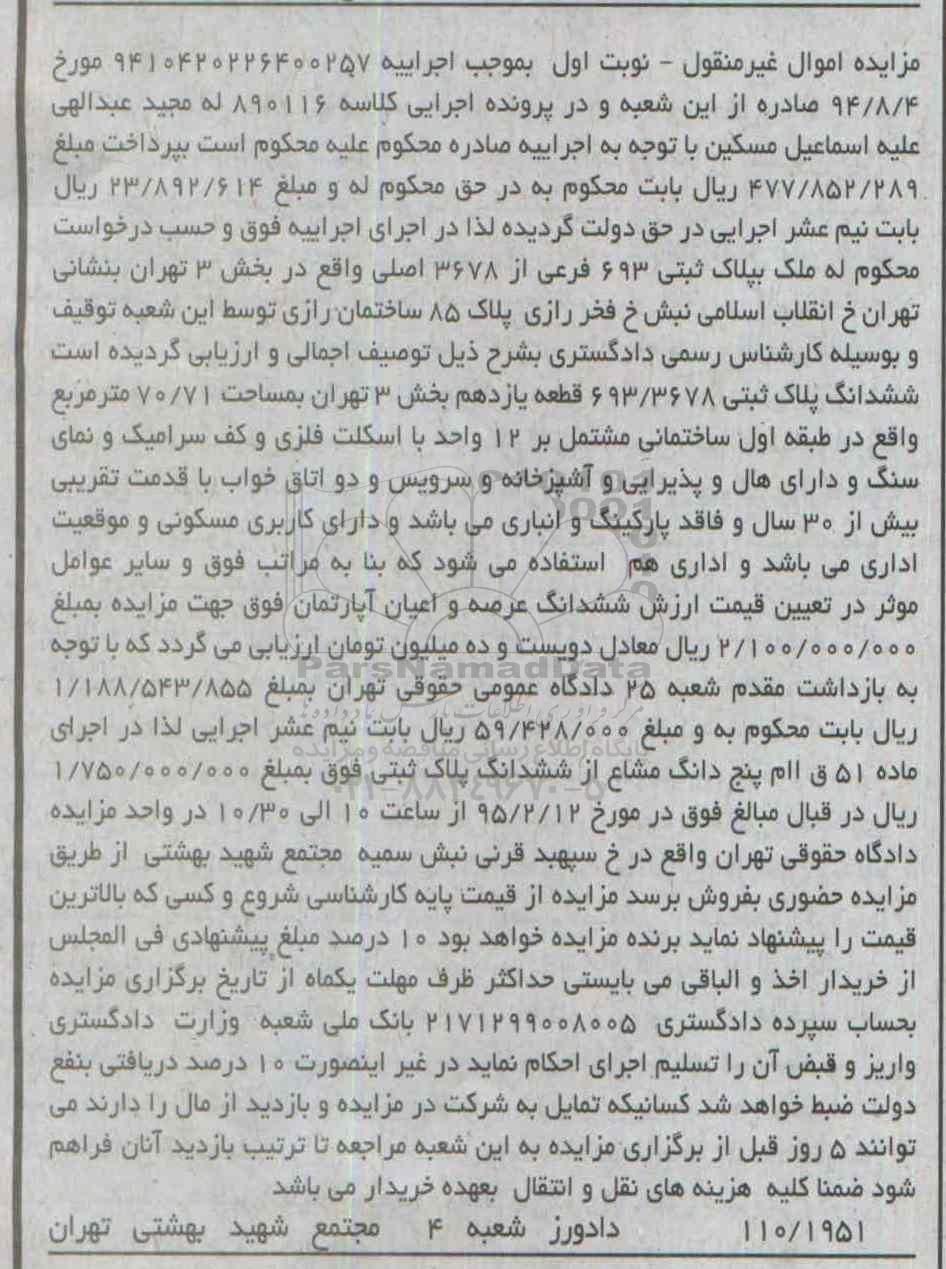 مزایده اموال غیرمنقول - نوبت اول بموجب اجراییه ۹۴۱۰۴۲۰۲۲۶۴۰۰۲۵۷ مورخ
۹۴/۸/۴ صادره از این شعبه و در پرونده اجرایی کلاسه ۸۹۰۱۱۶ له مجید عبدالهی
علیه اسماعیل مسکین با توجه به اجراییه صادره محکوم علیه محکوم است بپرداخت مبلغ
۴۷۷/۸۵۲/۲۸۹ ریال بابت محکوم به در حق محکوم له و مبلغ ۲۳/۸۹۲/۶۱۴ ریال
بابت نیم عشر اجرایی در حق دولت گردیده لذا در اجرای اجراییه فوق و حسب درخواست
محکوم له ملک بپلاک ثبتی ۶۹۳ فرعی از ۳۶۷۸ اصلی واقع در بخش ۳ تهران بنشانی
تهران خ انقلاب اسلامی نبش خ فخر رازی پلاک ۸۵ ساختمان رازی توسط این شعبه توقیف
و بوسیله کارشناس رسمی دادگستری بشرح ذیل توصیف اجمالی و ارزیابی گردیده است
ششدانگ پلاک ثبتی ۶۹۳/۳۶۷۸ قطعه یازدهم بخش ۳ تهران بمساحت ۷۰/۷۱ مترمربع
واقع در طبقه اول ساختمانی مشتمل بر ۱۲ واحد با اسکلت فلزی و کف سرامیک و نمای
سنگ و دارای هال و پذیرایی و آشپزخانه و سرویس و دو اتاق خواب با قدمت تقریبی
بیش از ۳۰ سال و فاقد پارکینگ و انباری می باشد و دارای کاربری مسکونی و موقعیت
اداری می باشد و اداری هم استفاده می شود که بنا به مراتب فوق و سایر عوامل
موثر در تعیین قیمت ارزش ششدانگ عرصه و اعیان آپارتمان فوق جهت مزایده بمبلغ
۲/۱۰۰/۰۰۰/۰۰۰ ریال معادل دویست و ده میلیون تومان ارزیابی می گردد که با توجه
ParsNamadData
به بازداشت مقدم شعبه ۲۵ دادگاه عمومی حقوقی تهران بمبلغ ۱/۱۸۸/۵۴۳/۸۵۵
ریال بابت محکوم به و مبلغ ۵۹/۴۲۸/۰۰۰ ریال بابت نیم عشر اجرایی لذا در اجرای
پایگاه اطلاع رسانی مناقصه و مزایده
ماده ۵۱ ق اام پنج دانگ مشاع از ششدانگ پلاک ثبتی فوق بمبلغ ۱/۷۵۰/۰۰۰/۰۰۰
۰۲۱-۸۸۳۴۹۶۷۰-۵
ریال در قبال مبالغ فوق در مورخ ۹۵/۲/۱۲ از ساعت ۱۰ الی ۱۰/۳۰ در واحد مزایده
دادگاه حقوقی تهران واقع در خ سپهبد قرنی نبش سمیه مجتمع شهید بهشتی از طریق
مزایده حضوری بفروش برسد مزایده از قیمت پایه کارشناسی شروع و کسی که بالاترین
قیمت را پیشنهاد نماید برنده مزایده خواهد بود ۱۰ درصد مبلغ پیشنهادی فی المجلس
از خریدار اخذ و الباقی می بایستی حداکثر ظرف مهلت یکماه از تاریخ برگزاری مزایده
بحساب سپرده دادگستری ۲۱۷۱۲۹۹۰۰۸۰۰۵ بانک ملی شعبه وزارت دادگستری
واریز و قبض آن را تسلیم اجرای احکام نماید در غیر اینصورت ۱۰ درصد دریافتی بنفع
دولت ضبط خواهد شد کسانیکه تمایل به شرکت در مزایده و بازدید از مال را دارند می
توانند ۵ روز قبل از برگزاری مزایده به این شعبه مراجعه تا ترتیب بازدید آنان فراهم
شود ضمنا کلیه هزینه های نقل و انتقال بعهده خریدار می باشد
۱۱۰/۱۹۵۱ دادورز شعبه ۴ مجتمع شهید بهشتی تهران